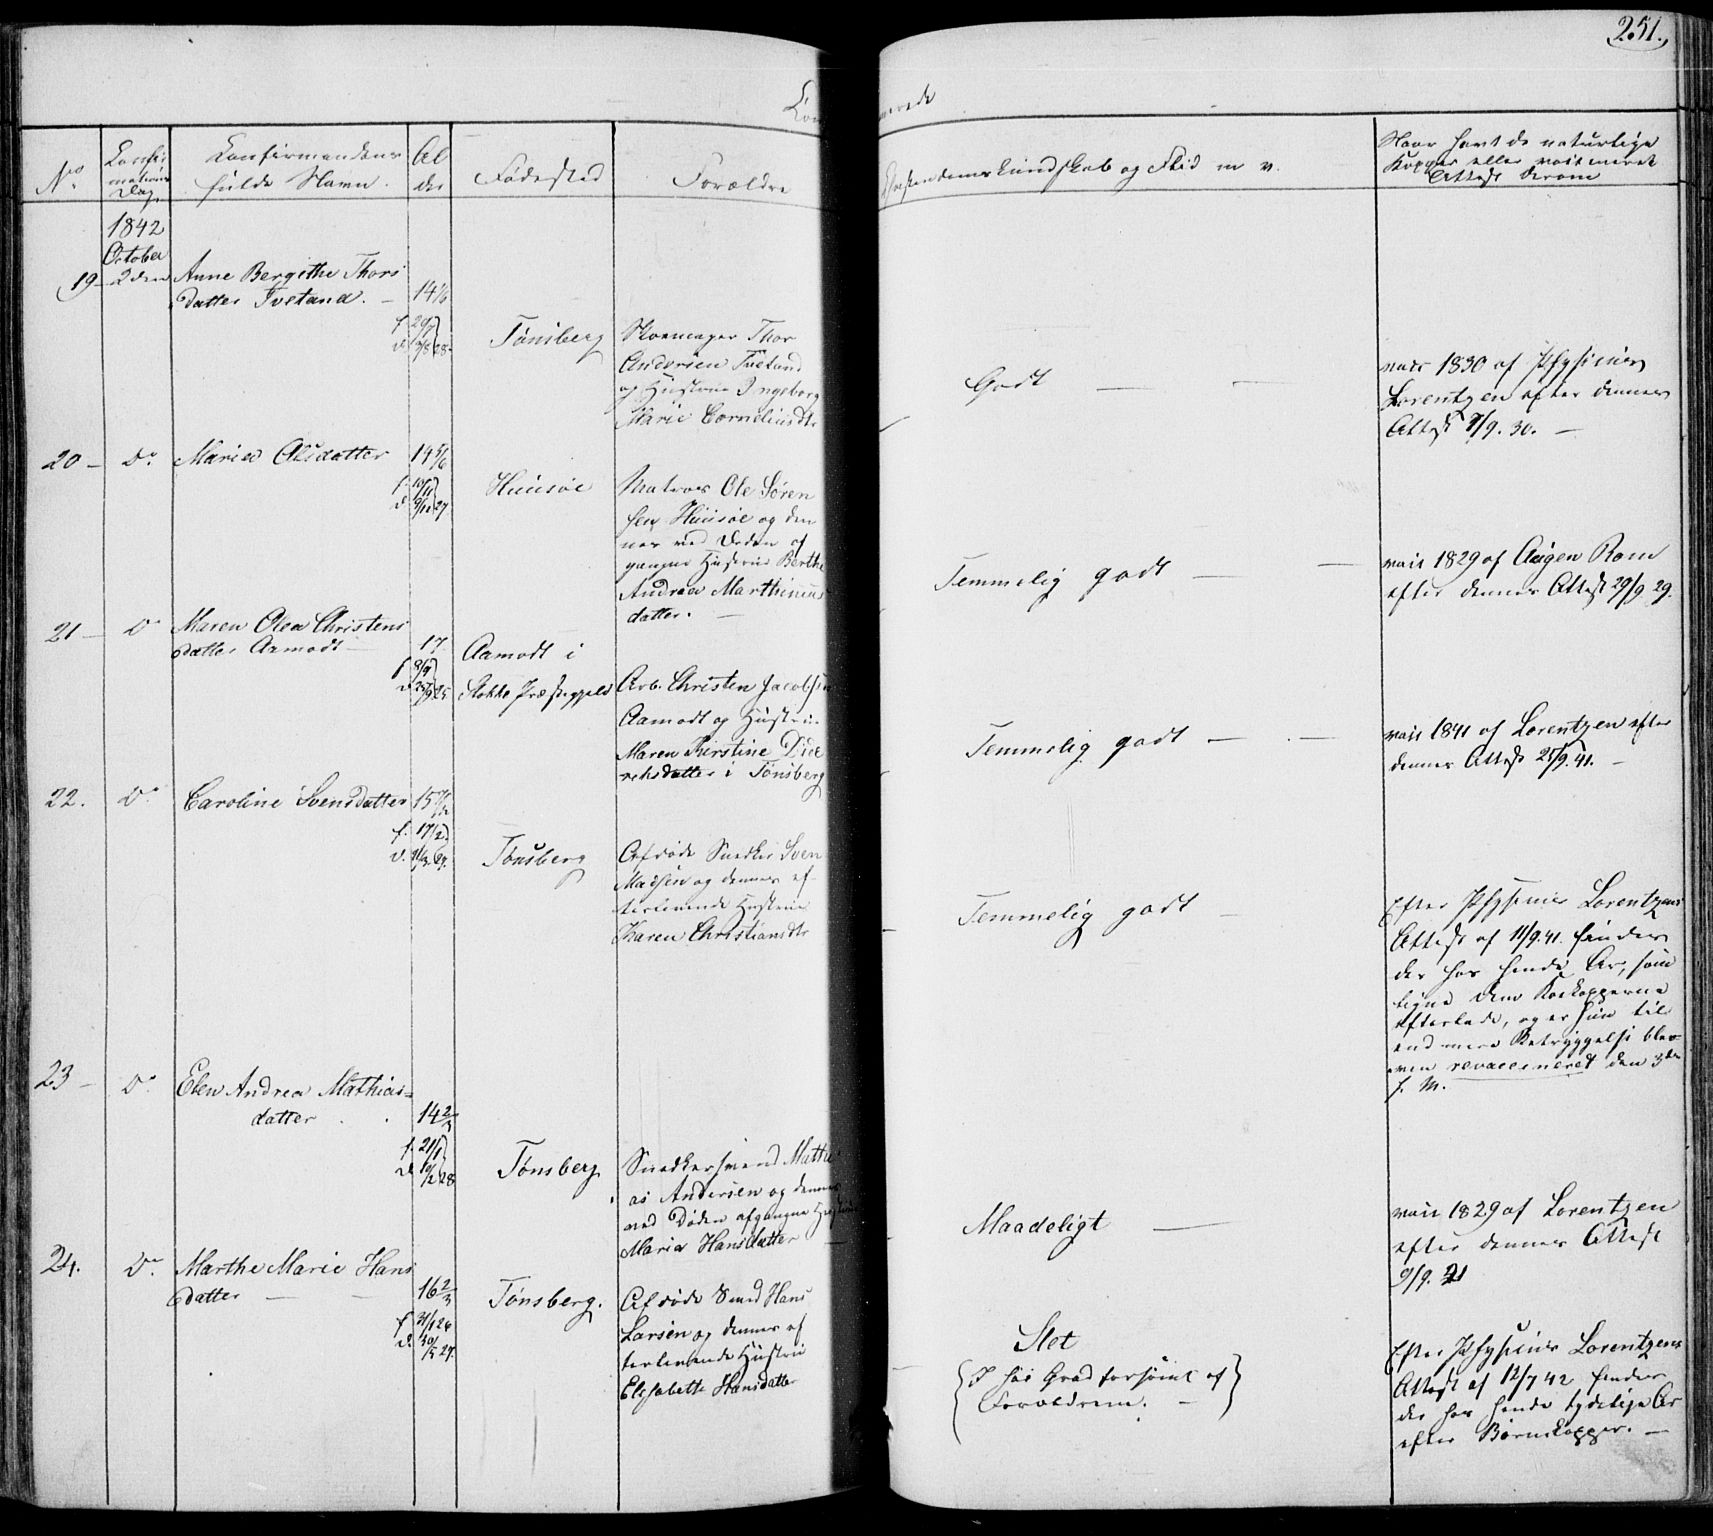 251.
Confirmerede
No
Confirmations Dag
Confirmandens fulde Navn.
Alder
Fødested
Forældre
Christendomskundskab og Flid m v.
Naar havt de naturlige Kopper eller vaccineret Attest derom
1842
October
19 - 2den Anne Bergithe Thors
datter Tvetand. — 14 1/6
Tønsberg
Skomager Thor
Andersen Tvetand
og Hustrue Ingeborg
Marie Corneliusdtr
Godt —
vacc 1830 af Physicus
Lorentzen efter dennes
Attest 7/9. 30. —
20 — Do Maria Olsdatter 14 5/6
Huusøe
Matros Ole Søren
sen Huusøe og den
nes ved Døden af
gangne Hustrue Berthe
Andrea Marthinius
datter. —
Temmelig godt —
vacc 1829 af Augen Rom
efter dennes Attest 29/9 29.
21 — Do Maren Olea Christens
datter Aamodt — 17.
Aamodt i
Stokke Præstegjeld
Arb. Christen Jacobsen
Aamodt og Hustrue
Maren Kirstine Died
richsdatter i Tønsberg
Temmelig godt — . —
vacc 1841 af Lorentzen efter
dennes Attest 25/9. 41. —
22. Do Caroline Svensdatter 15 7/12
f. 17/2
Tønsberg
Afdøde Snedker Sven
Madsen og dennes ef-
terlevende Hustrue
Karen Christiansdtr
Temmelig godt —
Efter Physicus Lorentzens
Attest af 11/9. 41. findes
der hos hende Ar, som
ligne dem Kokopperne
efterlade, og er hun til
end mere Betryggelse blev
ven revaccineret den 3die
f. M.
23 — Do Elen Andrea Mathias=
datter . . 14 2/3
f. 21/1
Tønsberg
Snedkersvend Mathi
as Andersen og dennes
ved Døden afgangne Hustrue
Maria Hansdatter —
Maadeligt —
vacc 1829 af Lorentzen
efter dennes Attest
9/9.
24. Do Marthe Marie Hans
datter — — 16 2/3
Tønsberg.
Afdøde Smed Hans
Larsen og dennes ef
terlevende Hustrue
Elisabeth Hansdatter
Slet
{I høi Grad forsømt af
Forældrene. —}
Efter Physicus Lorentzens
Attest af 12/7 42 findes
der hos hende tydelige Ar
efter Børnekopper. —